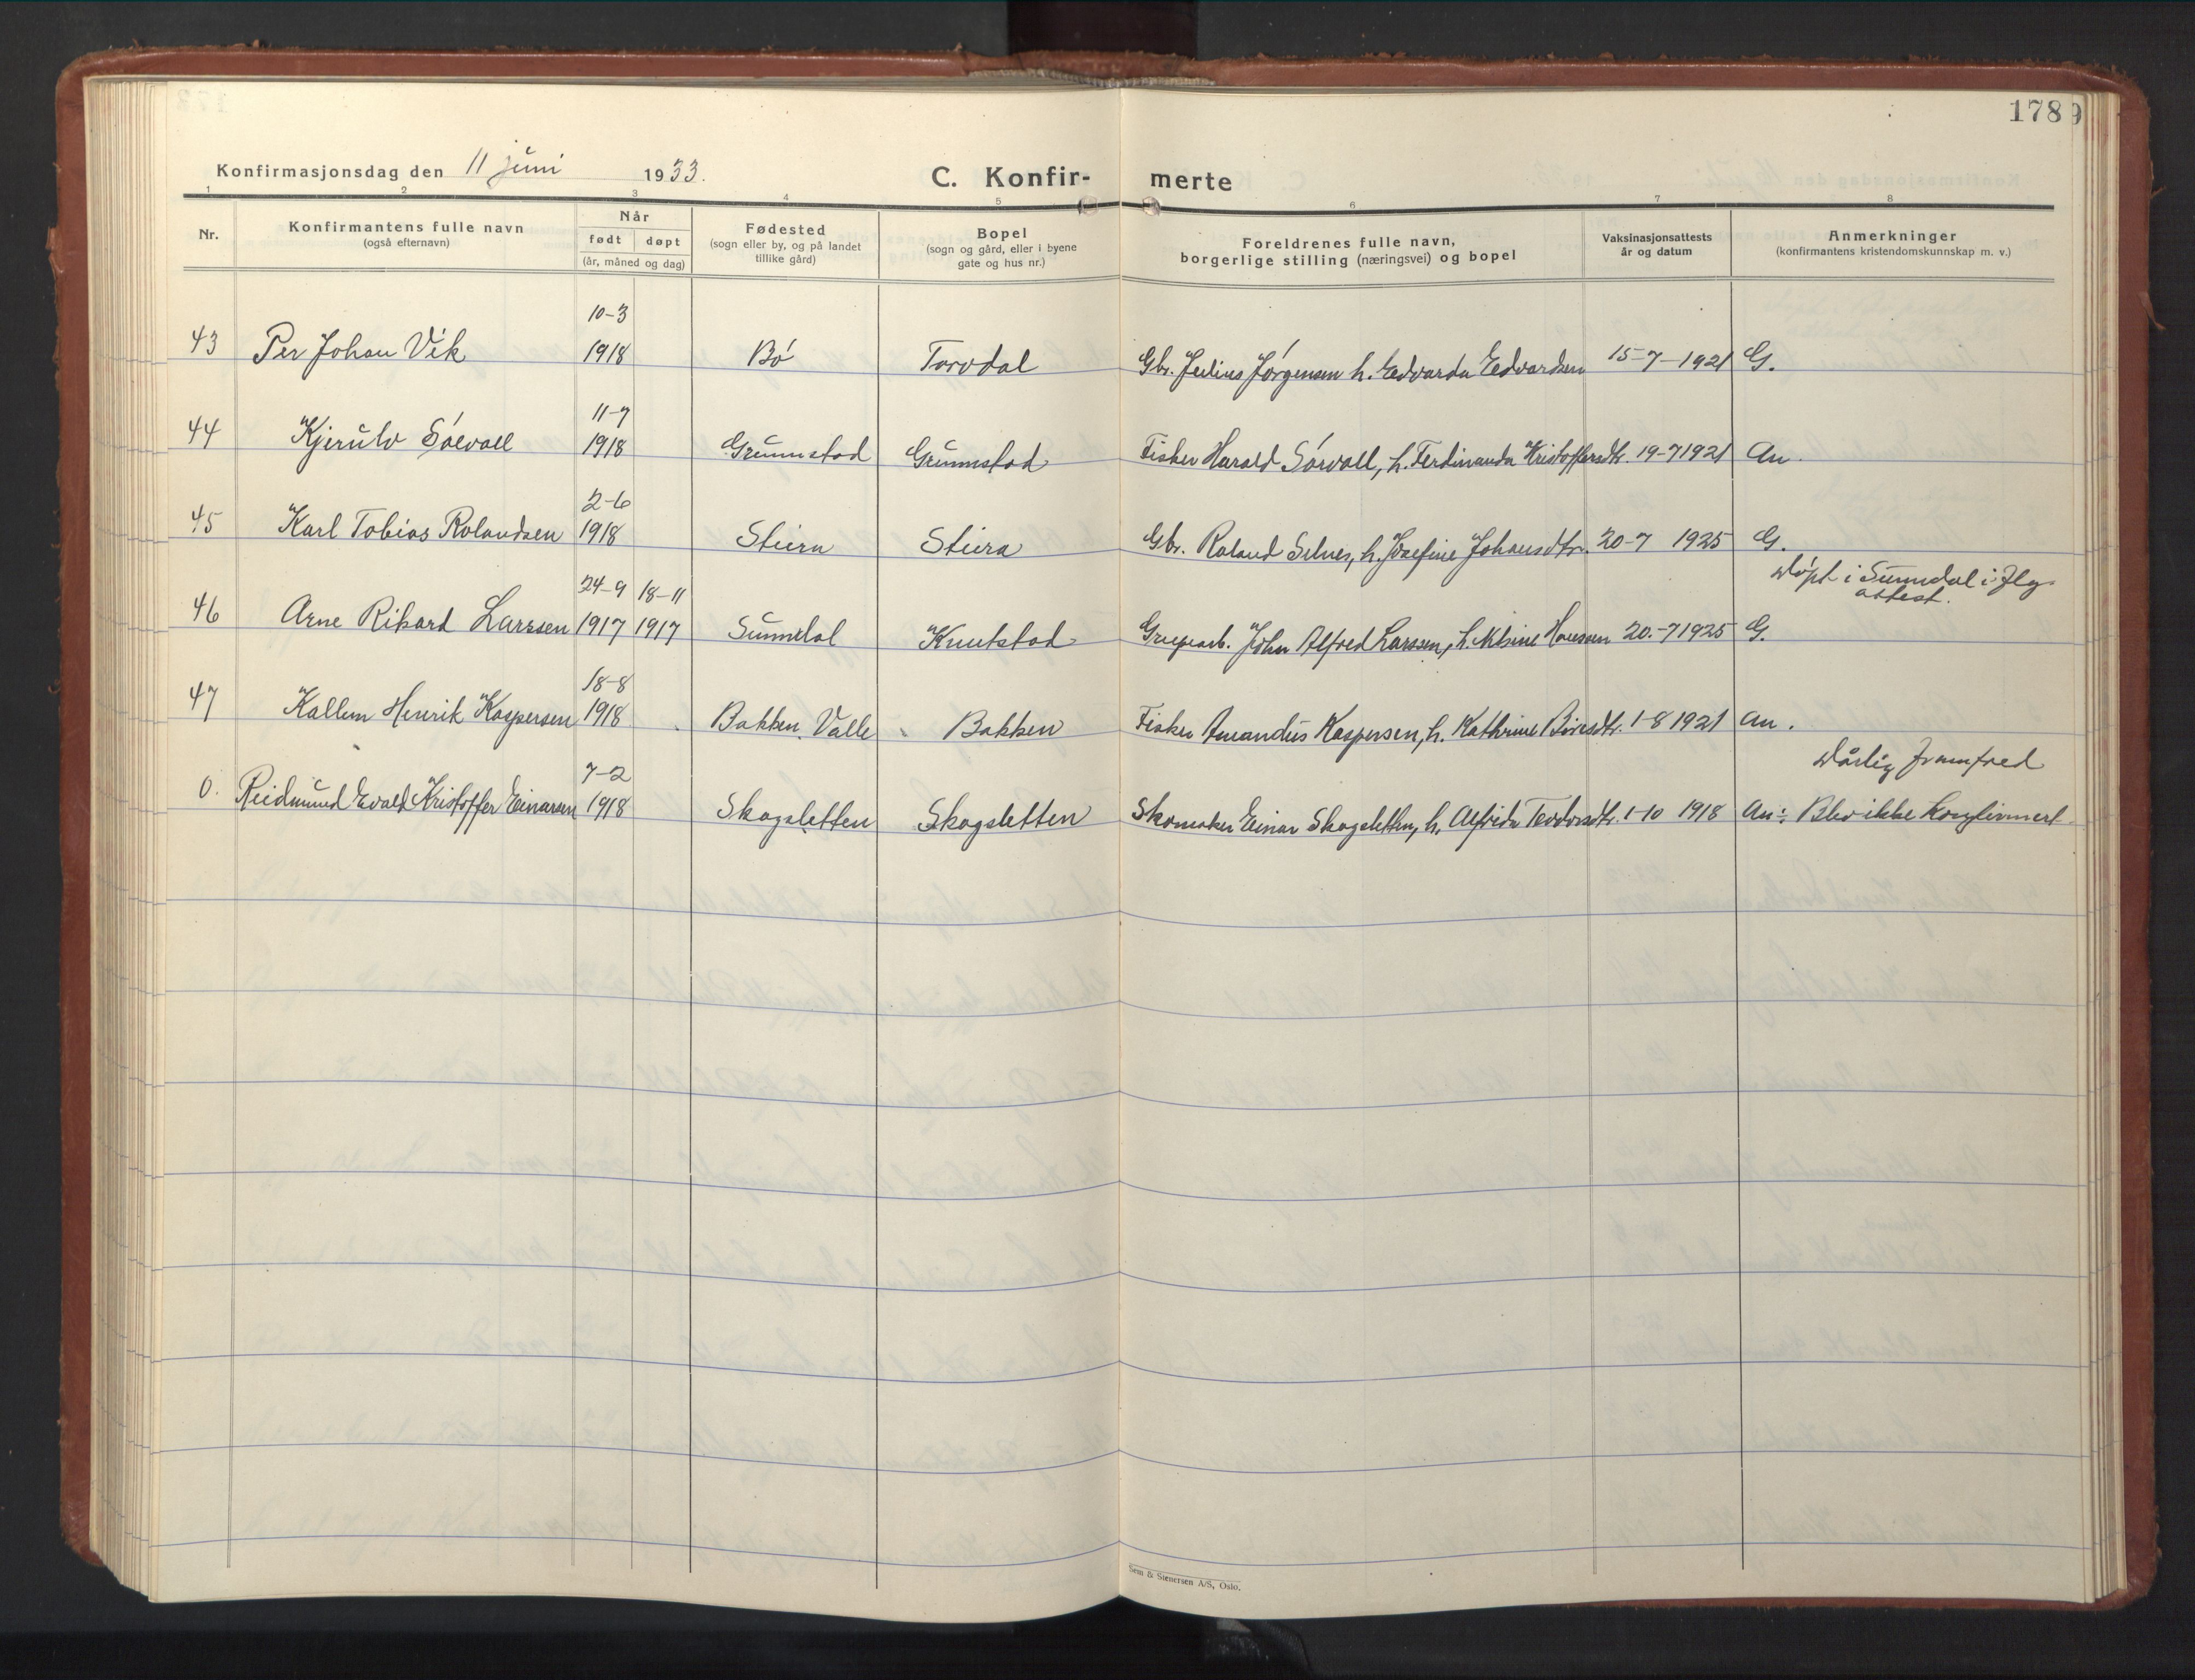 178
Konfirmasjonsdag den 11 juni 1933.
C. Konfir- merte
1 2 3 4 5 6 7 8
Nr.
Konfirmantens fulle navn
(også efternavn)
Når
født døpt
(år, måned og dag)
Fødested
(sogn eller by, og på landet
tillike gård)
Bopel
(sogn og gård, eller i byene
gate og hus nr.)
Foreldrenes fulle navn,
borgerlige stilling (næringsvei) og bopel
Vaksinasjonsattests
år og datum
Anmerkninger
(konfirmantens kristendomskunnskap m. v.)
10-3
43 Per Johan Vik 1918 Bø Torvdal Gbr. Julius Jørgensen h. Edvarda Edvardsen 15-7-1921 G.
11-7
44 Kjerulv Sølvoll 1918 Grunnstad Grunnstad Fisker Harald Sørvoll, h. Ferdinanda Kristoffersdtr. 19-7 1921 An.
2-6
45 Karl Tobias Rolandsen 1918 Steira Steira Gbr. Roland Selnes, h. Josefine Johansdtr. 20-7 1925 G.
24-9 18-11 Døpt i Sunndal i flg.
attest.
46 Arne Rikard Larssen 1917 1917 Sunndal Knutstad Grupearb. John Alfred Larssen, h. Hansen 20.-7 1925 G.
18-8
47 Kallem Henrik Kaspersen 1918 Bakken, Valle Bakken Fisker Amandus Kaspersen, h. Kathrine 1-8 1921 An.
7-2 Dårlig framferd
0. Reidmund Evald Kristoffer Einarsen 1918 Skogsletten Skogsletten Skomaker Einar Skogsletten, h. Alfrida Teodorsdtr. 1-10 1918 An÷ Blev ikke konfirmert
Sem & Stenersen A/S, Oslo.